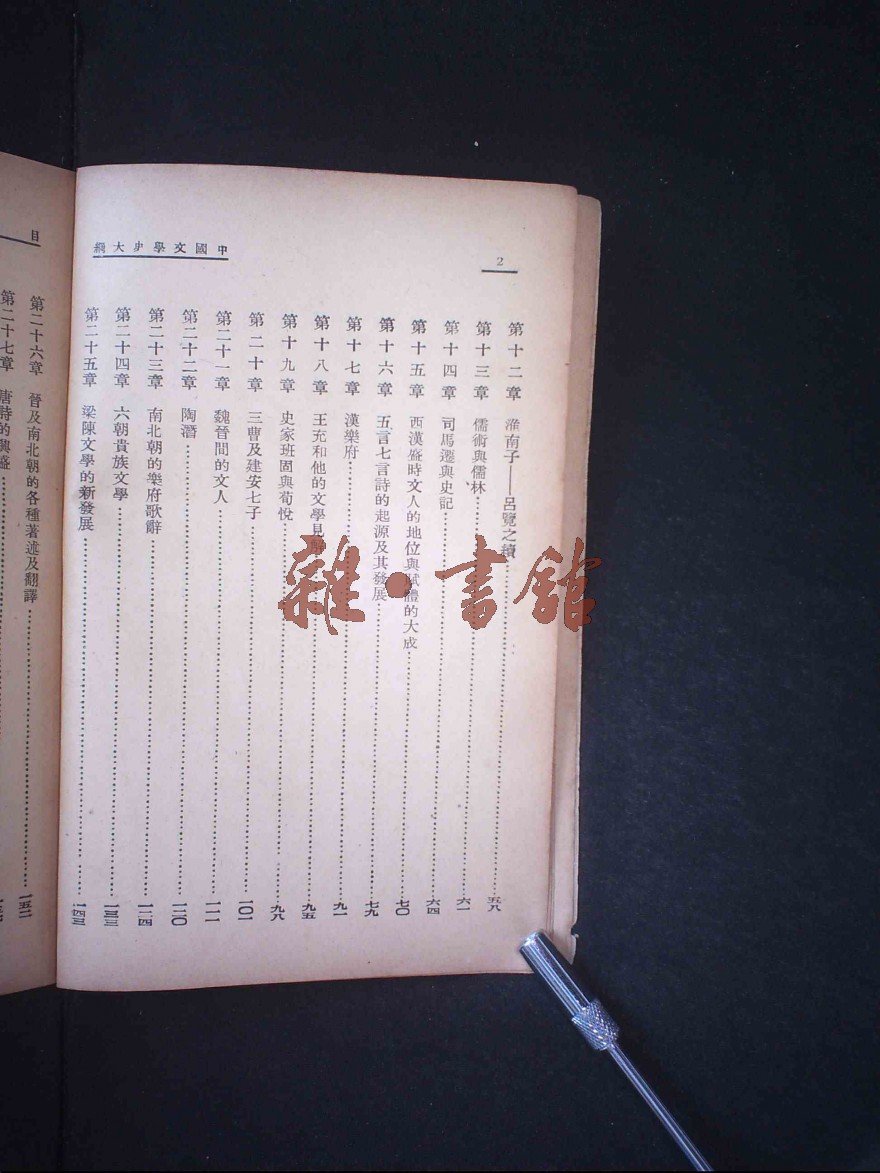 中國文學史大綱
2
第十二章 淮南子——呂覽之續……五八
第十三章 儒術與儒林……六一
第十四章 司馬遷與史記……六四
第十五章 西漢盛時文人的地位與賦體的大成……七〇
第十六章 五言七言詩的起源及其發展……七九
第十七章 漢樂府……九一
第十八章 王充和他的文學見解……九五
第十九章 史家班固與荀悅……九八
第二十章 三曹及建安七子……一〇一
第二十一章 魏晉間的文人……一一一
第二十二章 陶潛……一二〇
第二十三章 南北朝的樂府歌辭……一二四
第二十四章 六朝貴族文學……一三三
第二十五章 梁陳文學的新發展……一四三
目
第二十六章 晉及南北朝的各種著述及翻譯……一五二
第二十七章 唐詩的興盛……
雜·書館